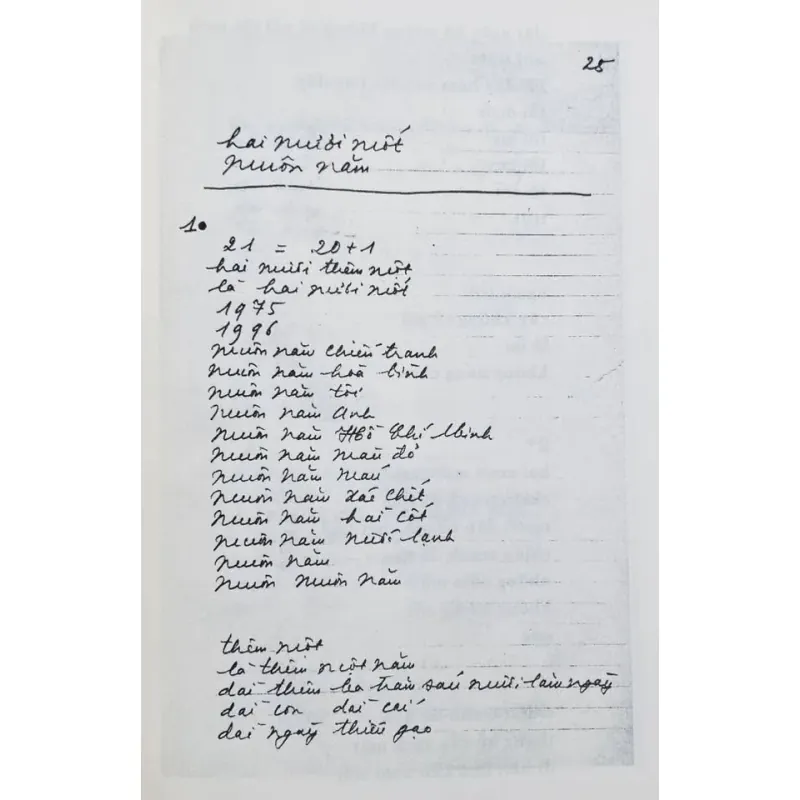 25
hai mươi mốt
muôn năm
1.
21 = 20+1
hai mươi thêm một
là hai mươi mốt
1975
1996
muôn năm chiến tranh
muôn năm hoà bình
muôn năm tôi
muôn năm anh
muôn năm Hồ Chí Minh
muôn năm màu đỏ
muôn năm máu
muôn năm xác chết
muôn năm hài cốt
muôn năm nước lạnh
muôn năm
muôn muôn năm
thêm một
là thêm một năm
dài thêm ba trăm sáu mươi lăm ngày
dài con dài cái
dài ngày thiếu gạo